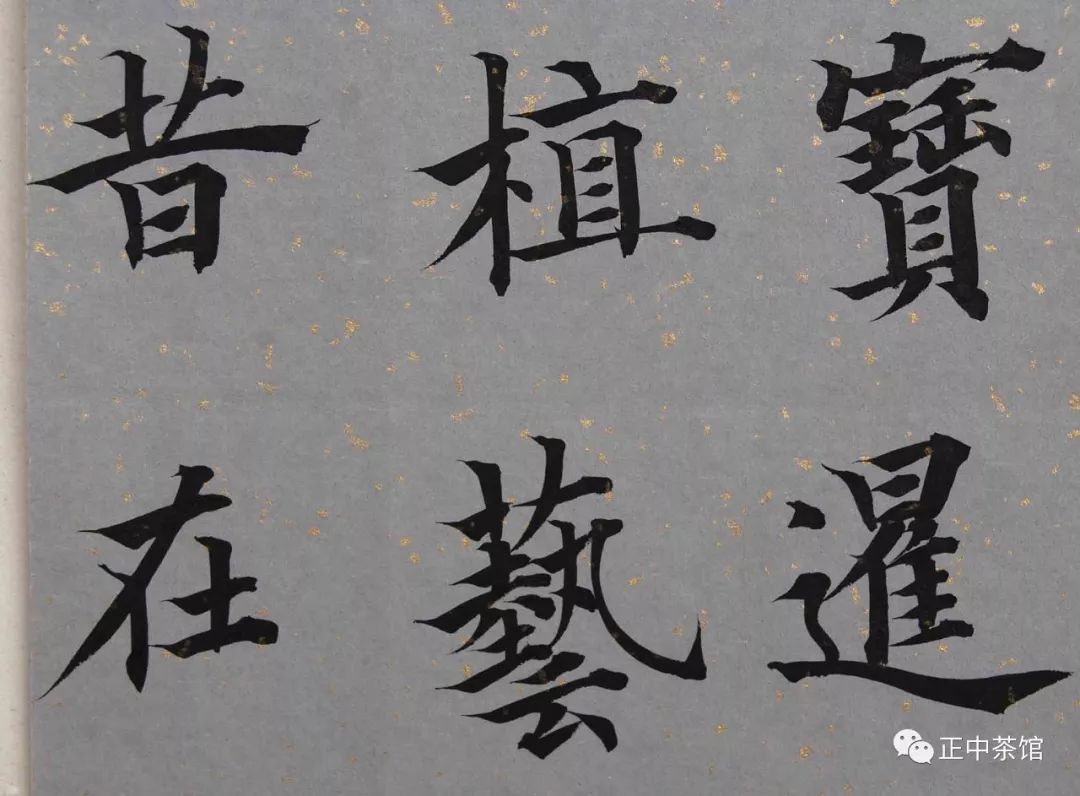 寶暹
植藝
昔在
正中茶馆